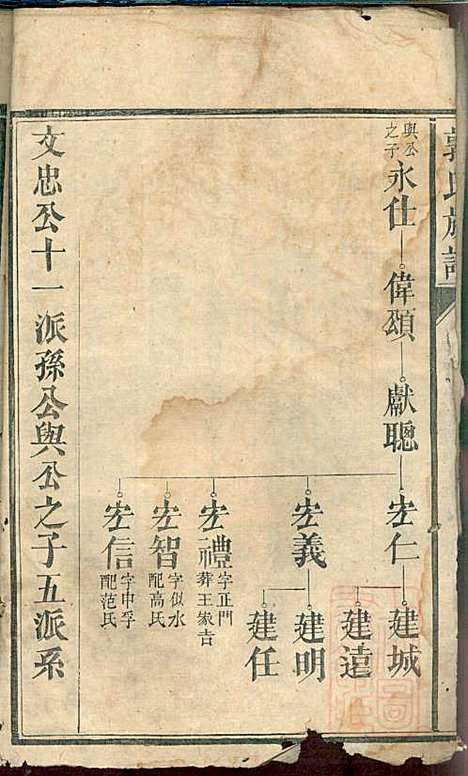 郭氏族譜
與公之子
永仕 偉頌 獻聰 宏仁 建城
建遠
宏義 建明
建任
宏禮 字正門 葬王家吉
宏智 字似水 配高氏
宏信 字中孚 配范氏
文忠公十一派孫公與公之子五派系